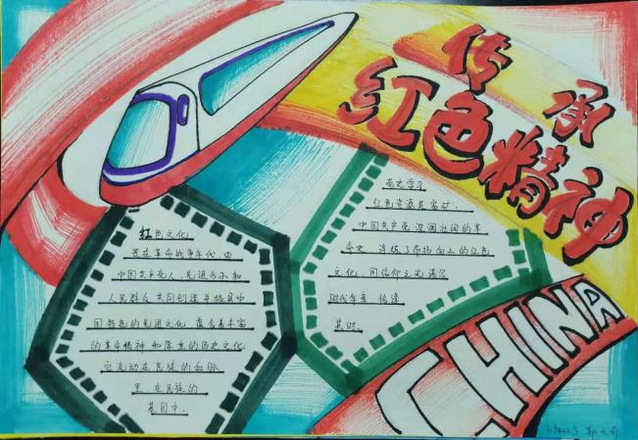 传承
红色精神
红色文化
是在革命战争年代,由
中国共产党人、先进分子和
人民群众共同创造并极具中
国特色的先进文化,蕴含着丰富
的革命精神和厚重的历史文化
它流动在民族的血脉
里,在民族的
基因中。
向史学习
红色资源是富矿,
中国共产党波澜壮阔的革
命史,
向上的红色
文化,用信仰之光浸染
时代年华,恰逢
其时。
CHINA